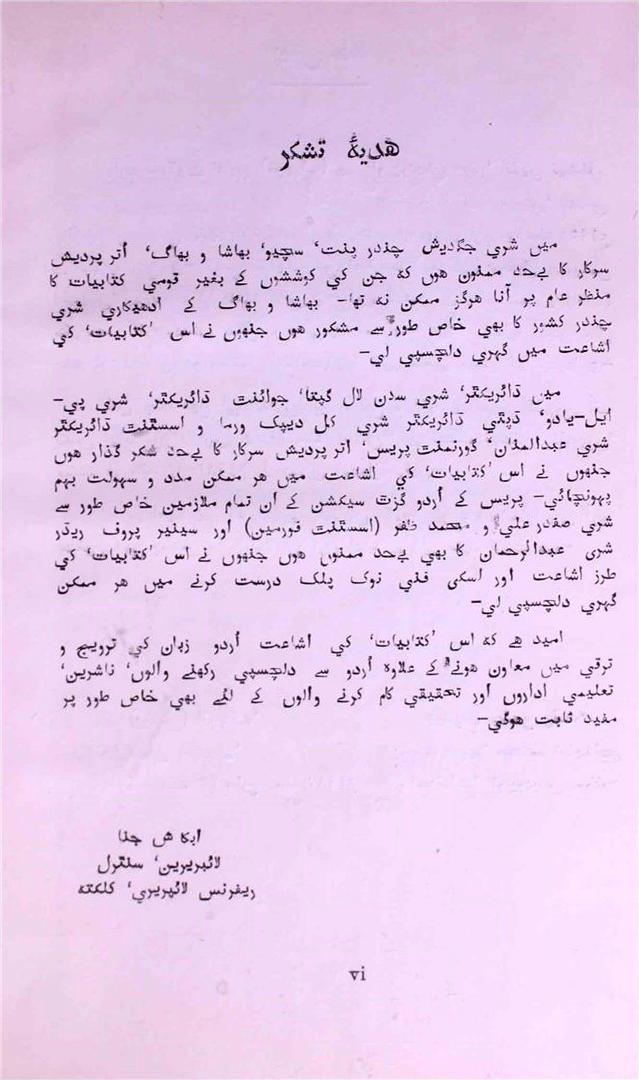 ھدیۂ تشکر
میں شری جگدیش چندر پنت، سچیو، بھاشا و بھاگ، اُتر پردیش
سرکار کا بےحد ممنون ھوں کہ جن کی کوششوں کے بغیر قومی کتابیات کا
منظر عام پر آنا ھرگز ممکن نہ تھا۔ بھاشا و بھاگ کے ادھیکاری شری
چندر کشور کا بھی خاص طور سے مشکور ھوں جنھوں نے اس ’کتابیات‘ کی
اشاعت میں گہری دلچسپی لی۔
میں ڈائریکٹر، شری مدن لال گپتا، جوائنٹ ڈائریکٹر، شری پی۔
ایل۔یادو، ڈپٹی ڈائریکٹر شری کل دیپک ورما و اسسٹنٹ ڈائریکٹر
شری عبدالمنان، گورنمنٹ پریس، اتر پردیش سرکار کا بےحد شکر گذار ھوں
جنھوں نے اس ’کتابیات‘ کی اشاعت میں ھر ممکن مدد و سہولت بہم
پہونچائی۔ پریس کے اُردو گزٹ سیکشن کے ان تمام ملازمین خاص طور سے
شری صفدر علی و محمد ظفر (اسسٹنٹ فورمین) اور سینیر پروف ریڈر
شری عبدالرحمان کا بھی بےحد ممنوں ھوں جنھوں نے اس ’کتابیات‘ کی
طرز اشاعت اور اسکی فنی نوک پلک درست کرنے میں ھر ممکن
گہری دلچسپی لی۔
امید ھے کہ اس ’کتابیات‘ کی اشاعت اُردو زبان کی ترویج و
ترقی میں معاون ھونے کے علاوہ اُردو سے دلچسپی رکھنے والوں، ناشرین،
تعلیمی اداروں اور تحقیقی کام کرنے والوں کے لئے بھی خاص طور پر
مفید ثابت ھوگی۔
لائبریرین، سنٹرل
ریفرنس لائبریری، کلکتہ
vi